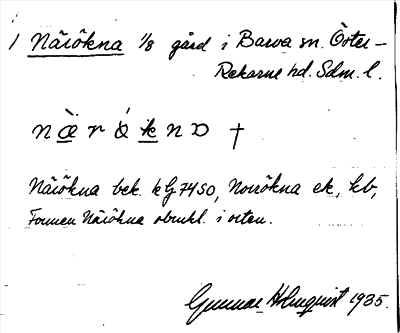 1 Näsökna 1/8 gård i Barva sn. Öster-
Rekarne hd. Sdm. l.
n æ̀ r ó k n ɒ †
Näsökna bek. kG7450, Norrökna ek, kb,
Formen Näsökna obrukl. i orten.
Gunnar Holmquist 1935.